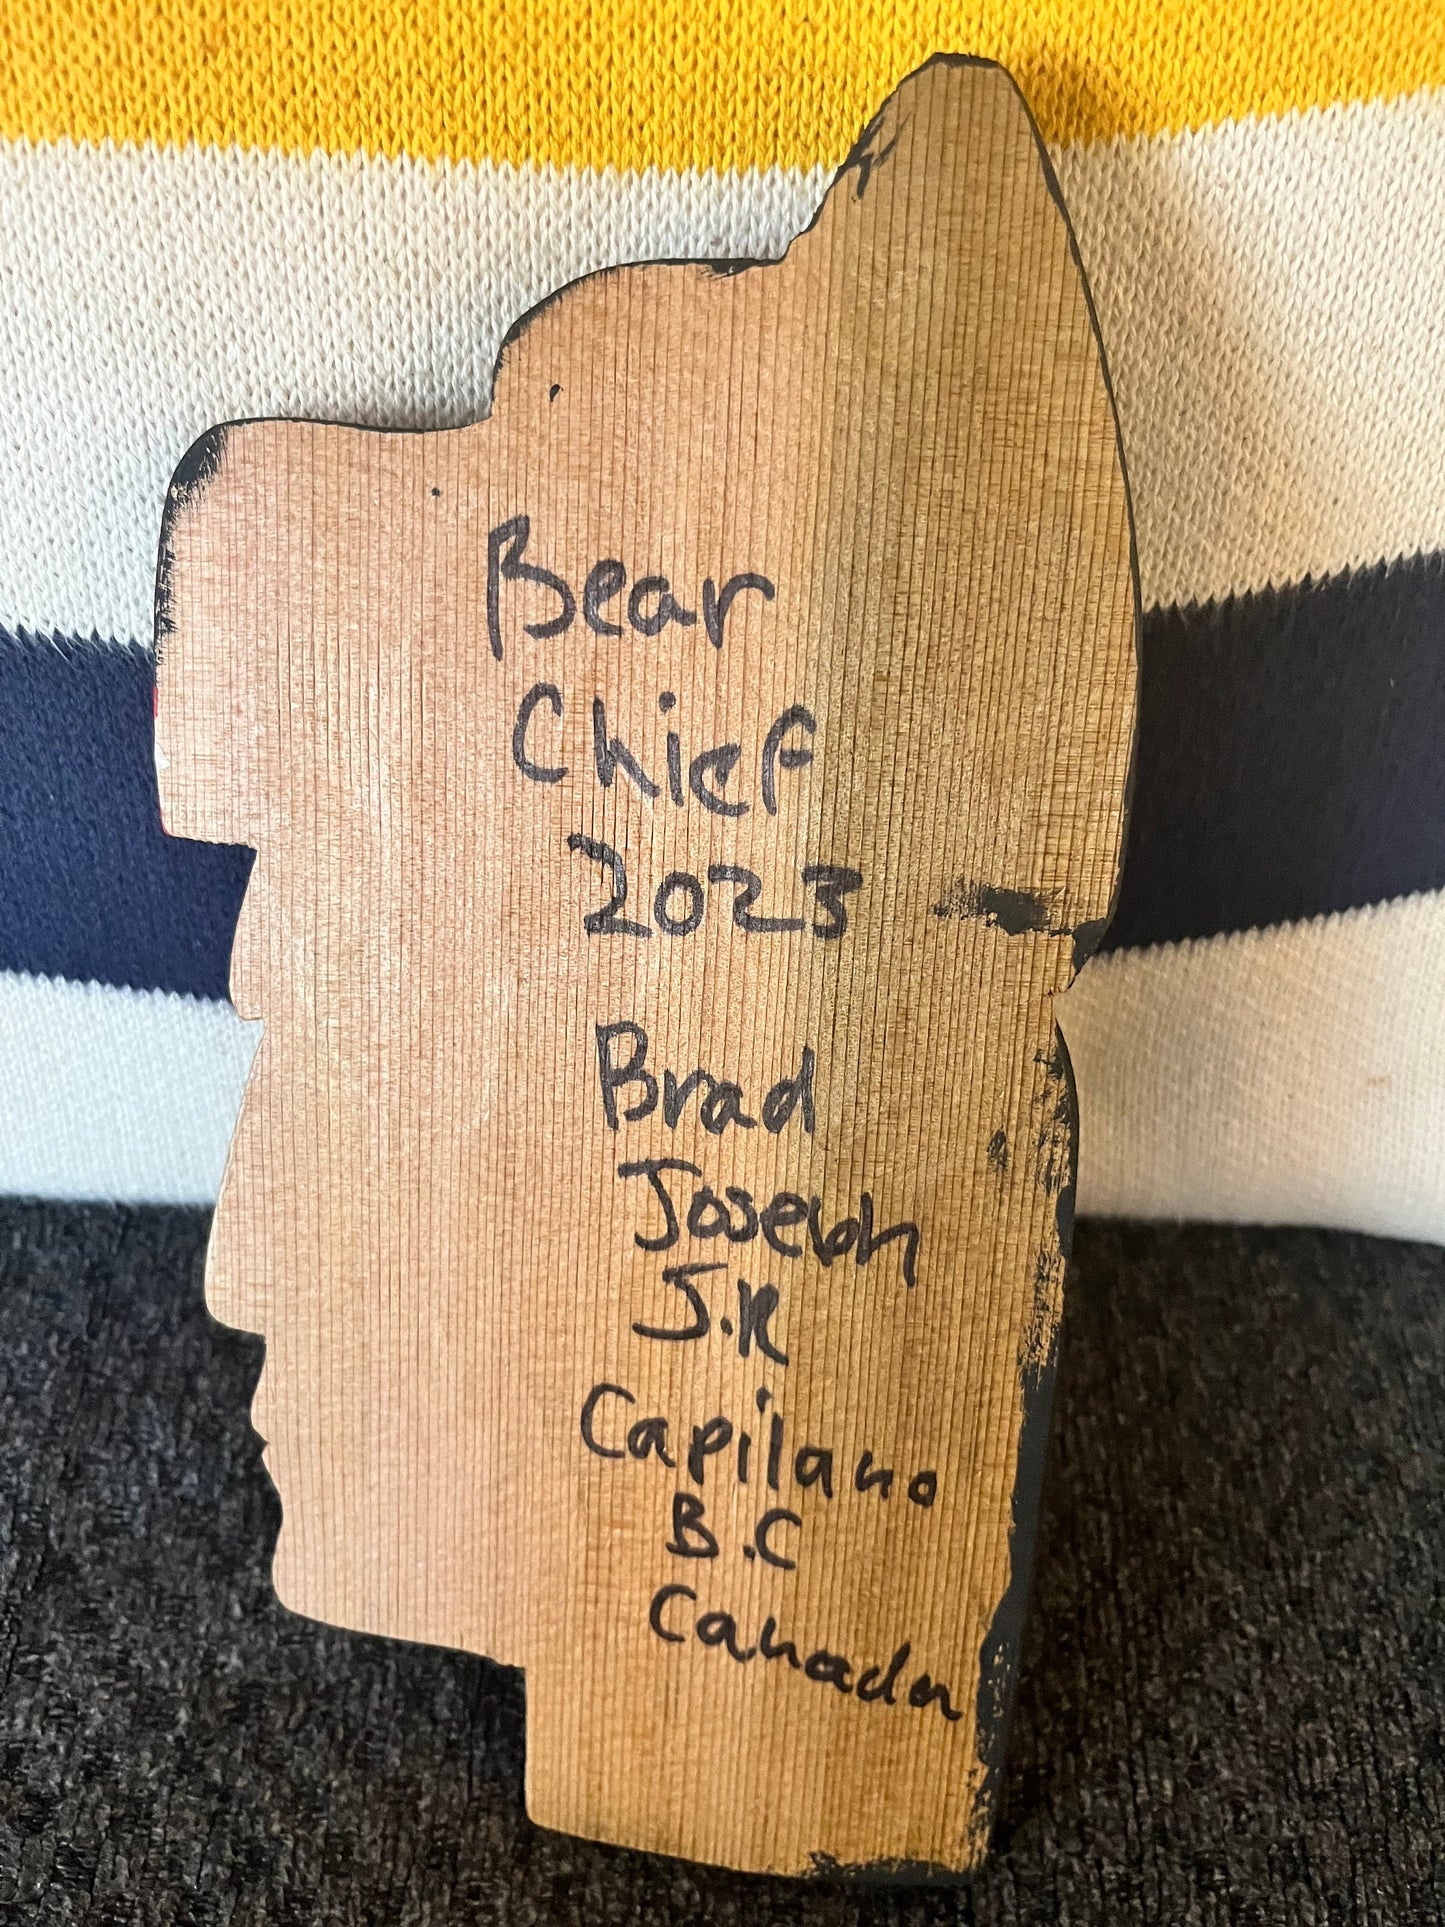 Bear
Chief
2023
Brad
Joseph
J.R
Capilano
B.C
Canada